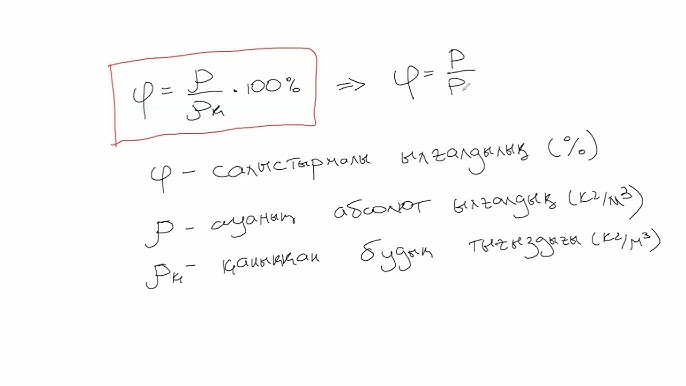 φ = ρ/ρₖ · 100% ⇒ φ = P/P
φ – салыстырмалы ылғалдылық (%)
ρ – ауаның абсолют ылғалдық (кг/м³)
ρₖ – қаныққан будың тығыздығы (кг/м³)